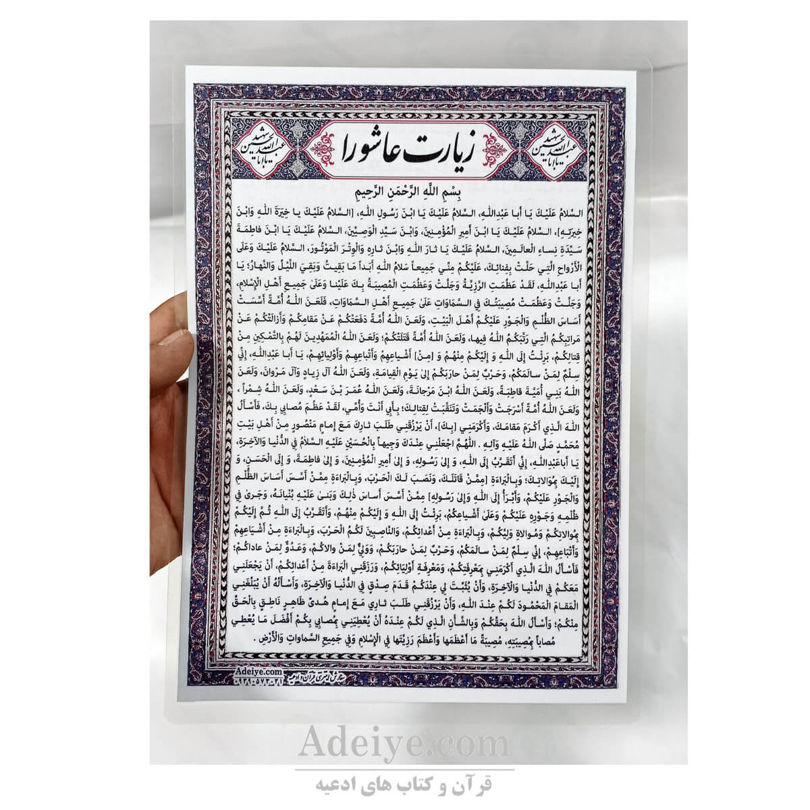 زیارت عاشورا
بِسْمِ اللَّهِ الرَّحْمَنِ الرَّحِيمِ
السَّلامُ عَلَيْكَ يَا أَبا عَبْدِاللهِ، السَّلامُ عَلَيْكَ يَا ابْنَ رَسُولِ اللهِ، [السَّلامُ عَلَيْكَ يا خِيَرَةَ اللهِ وَابْنَ
خِيَرَتِهِ]، السَّلامُ عَلَيْكَ يَا ابْنَ أَمِيرِ الْمُؤْمِنِينَ، وَابْنَ سَيِّدِ الْوَصِيِّينَ، السَّلامُ عَلَيْكَ يَا ابْنَ فاطِمَةَ
سَيِّدَةِ نِساءِ الْعالَمِينَ، السَّلامُ عَلَيْكَ يَا ثَارَ اللهِ وَابْنَ ثارِهِ وَالْوِتْرَ الْمَوْتُورَ، السَّلامُ عَلَيْكَ وَعَلَى
الْأَرْواحِ الَّتِي حَلَّتْ بِفِنائِكَ، عَلَيْكُمْ مِنِّي جَمِيعاً سَلامُ اللهِ أَبَداً مَا بَقِيتُ وَبَقِيَ اللَّيْلُ وَالنَّهارُ؛ يَا
أَبا عَبْدِاللهِ، لَقَدْ عَظُمَتِ الرَّزِيَّةُ وَجَلَّتْ وَعَظُمَتِ الْمُصِيبَةُ بِكَ عَلَيْنا وَعَلَى جَمِيعِ أَهْلِ الْإِسْلامِ،
وَجَلَّتْ وَعَظُمَتْ مُصِيبَتُكَ فِي السَّمَاوَاتِ عَلَىٰ جَمِيعِ أَهْلِ السَّمَاوَاتِ، فَلَعَنَ اللهُ أُمَّةً أَسَّسَتْ
أَساسَ الظُّلْمِ وَالْجَوْرِ عَلَيْكُمْ أَهْلَ الْبَيْتِ، وَلَعَنَ اللهُ أُمَّةً دَفَعَتْكُمْ عَنْ مَقامِكُمْ وَأَزالَتْكُمْ عَنْ
مَراتِبِكُمُ الَّتِي رَتَّبَكُمُ اللهُ فِيها، وَلَعَنَ اللهُ أُمَّةً قَتَلَتْكُمْ؛ وَلَعَنَ اللهُ الْمُمَهِّدِينَ لَهُمْ بِالتَّمْكِينِ مِنْ
قِتالِكُمْ، بَرِئْتُ إِلَى اللهِ وَ إِلَيْكُمْ مِنْهُمْ وَ [مِنْ] أَشْياعِهِمْ وَأَتْباعِهِمْ وَأَوْلِيائِهِمْ، يَا أَبا عَبْدِاللهِ، إِنِّي
سِلْمٌ لِمَنْ سالَمَكُمْ، وَحَرْبٌ لِمَنْ حارَبَكُمْ إِلىٰ يَوْمِ الْقِيامَةِ، وَلَعَنَ اللهُ آلَ زِيادٍ وَآلَ مَرْوانَ، وَلَعَنَ
اللهُ بَنِي أُمَيَّةَ قاطِبَةً، وَلَعَنَ اللهُ ابْنَ مَرْجانَةَ، وَلَعَنَ اللهُ عُمَرَ بْنَ سَعْدٍ، وَلَعَنَ اللهُ شِمْراً ،
وَلَعَنَ اللهُ أُمَّةً أَسْرَجَتْ وَأَلْجَمَتْ وَتَنَقَّبَتْ لِقِتالِكَ؛ بِأَبِي أَنْتَ وَأُمِّي، لَقَدْ عَظُمَ مُصابِي بِكَ، فَأَسْأَلُ
اللهَ الَّذِي أَكْرَمَ مَقامَكَ، وَأَكْرَمَنِي [بِكَ]، أَنْ يَرْزُقَنِي طَلَبَ ثارِكَ مَعَ إِمامٍ مَنْصُورٍ مِنْ أَهْلِ بَيْتِ
مُحَمَّدٍ صَلَّى اللهُ عَلَيْهِ وَآلِهِ . اللَّهُمَّ اجْعَلْنِي عِنْدَكَ وَجِيهاً بِالْحُسَيْنِ عَلَيْهِ السَّلامُ فِي الدُّنْيا وَالآخِرَةِ،
يَا أَباعَبْدِاللهِ، إِنِّي أَتَقَرَّبُ إِلَى اللهِ، وَ إِلىٰ رَسُولِهِ، وَ إِلىٰ أَمِيرِ الْمُؤْمِنِينَ، وَ إِلىٰ فاطِمَةَ، وَ إِلَى الْحَسَنِ، وَ
إِلَيْكَ بِمُوَالاتِكَ؛ وَبِالْبَراءَةِ [مِمَّنْ قاتَلَكَ، وَنَصَبَ لَكَ الْحَرْبَ، وَبِالْبَراءَةِ مِمَّنْ أَسَّسَ أَساسَ الظُّلْمِ
وَالْجَوْرِ عَلَيْكُمْ، وَأَبْرَأُ إِلَى اللهِ وَإِلىٰ رَسُولِهِ] مِمَّنْ أَسَّسَ أَساسَ ذٰلِكَ وَبَنىٰ عَلَيْهِ بُنْيانَهُ، وَجَرىٰ فِي
ظُلْمِهِ وَجَوْرِهِ عَلَيْكُمْ وَعَلىٰ أَشْياعِكُمْ، بَرِئْتُ إِلَى اللهِ وَ إِلَيْكُمْ مِنْهُمْ، وَأَتَقَرَّبُ إِلَى اللهِ ثُمَّ إِلَيْكُمْ
بِمُوالاتِكُمْ وَمُوالاةِ وَلِيِّكُمْ، وَبِالْبَراءَةِ مِنْ أَعْدائِكُمْ، وَالنَّاصِبِينَ لَكُمُ الْحَرْبَ، وَبِالْبَراءَةِ مِنْ أَشْياعِهِمْ
وَأَتْباعِهِمْ، إِنِّي سِلْمٌ لِمَنْ سالَمَكُمْ، وَحَرْبٌ لِمَنْ حارَبَكُمْ، وَوَلِيٌّ لِمَنْ والاكُمْ، وَعَدُوٌّ لِمَنْ عاداكُمْ؛
فَأَسْأَلُ اللهَ الَّذِي أَكْرَمَنِي بِمَعْرِفَتِكُمْ، وَمَعْرِفَةِ أَوْلِيائِكُمْ، وَرَزَقَنِي الْبَراءَةَ مِنْ أَعْدائِكُمْ، أَنْ يَجْعَلَنِي
مَعَكُمْ فِي الدُّنْيا وَالْآخِرَةِ، وَأَنْ يُثَبِّتَ لِي عِنْدَكُمْ قَدَمَ صِدْقٍ فِي الدُّنْيا وَالْآخِرَةِ، وَأَسْأَلُهُ أَنْ يُبَلِّغَنِي
الْمَقامَ الْمَحْمُودَ لَكُمْ عِنْدَ اللهِ، وَأَنْ يَرْزُقَنِي طَلَبَ ثارِي مَعَ إِمامِ هُدىً ظاهِرٍ ناطِقٍ بِالْحَقِّ
مِنْكُمْ؛ وَأَسْأَلُ اللهَ بِحَقِّكُمْ وَبِالشَّأْنِ الَّذِي لَكُمْ عِنْدَهُ أَنْ يُعْطِيَنِي بِمُصابِي بِكُمْ أَفْضَلَ مَا يُعْطِي
مُصاباً بِمُصِيبَتِهِ، مُصِيبَةً مَا أَعْظَمَها وَأَعْظَمَ رَزِيَّتَها فِي الْإِسْلامِ وَفِي جَمِيعِ السَّماواتِ وَالْأَرْضِ .
Adeiye.com
Adeiye.com
قرآن و کتاب های ادعیه